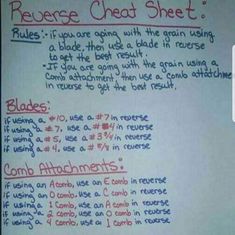 Reverse Cheat Sheet:
Rules:- if you are going with the grain using
a blade, then use a blade in reverse
to get the best result.
- If you are going with the grain using a
Comb attachment, then use a comb attatchment
in reverse to get the best result.
Blades:
if using a #10, use a #7 in reverse
if using a #7, use a #4 in reverse
if using a #5, use a #3 3/4 in reverse
if using a #4, use a # 5/8 in reverse
Comb Attachments:
if using an A comb, use an E comb in reverse
if using an O comb, use a C comb in reverse
if using a 1 comb, use an A comb in reverse
if using a 2 comb, use an O comb in reverse
if using a 4 comb, use a 1 comb in reverse